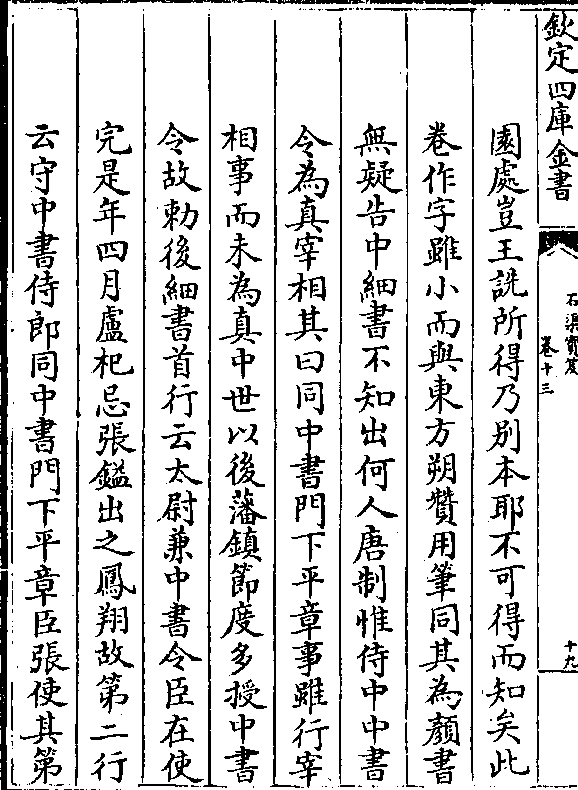 欽定四庫全書
石渠寶笈
卷十三
十九
園處豈王詵所得乃别本耶不可得而知矣此
卷作字雖小而與東方朔贊用筆同其為顏書
無疑告中細書不知出何人唐制惟侍中中書
令為真宰相其曰同中書門下平章事雖行宰
相事而未為真中世以後藩鎮節度多授中書
令故勅後細書首行云太尉兼中書令臣在使
完是年四月盧杞忌張鎰出之鳳翔故第二行
云守中書侍郎同中書門下平章臣張使其第